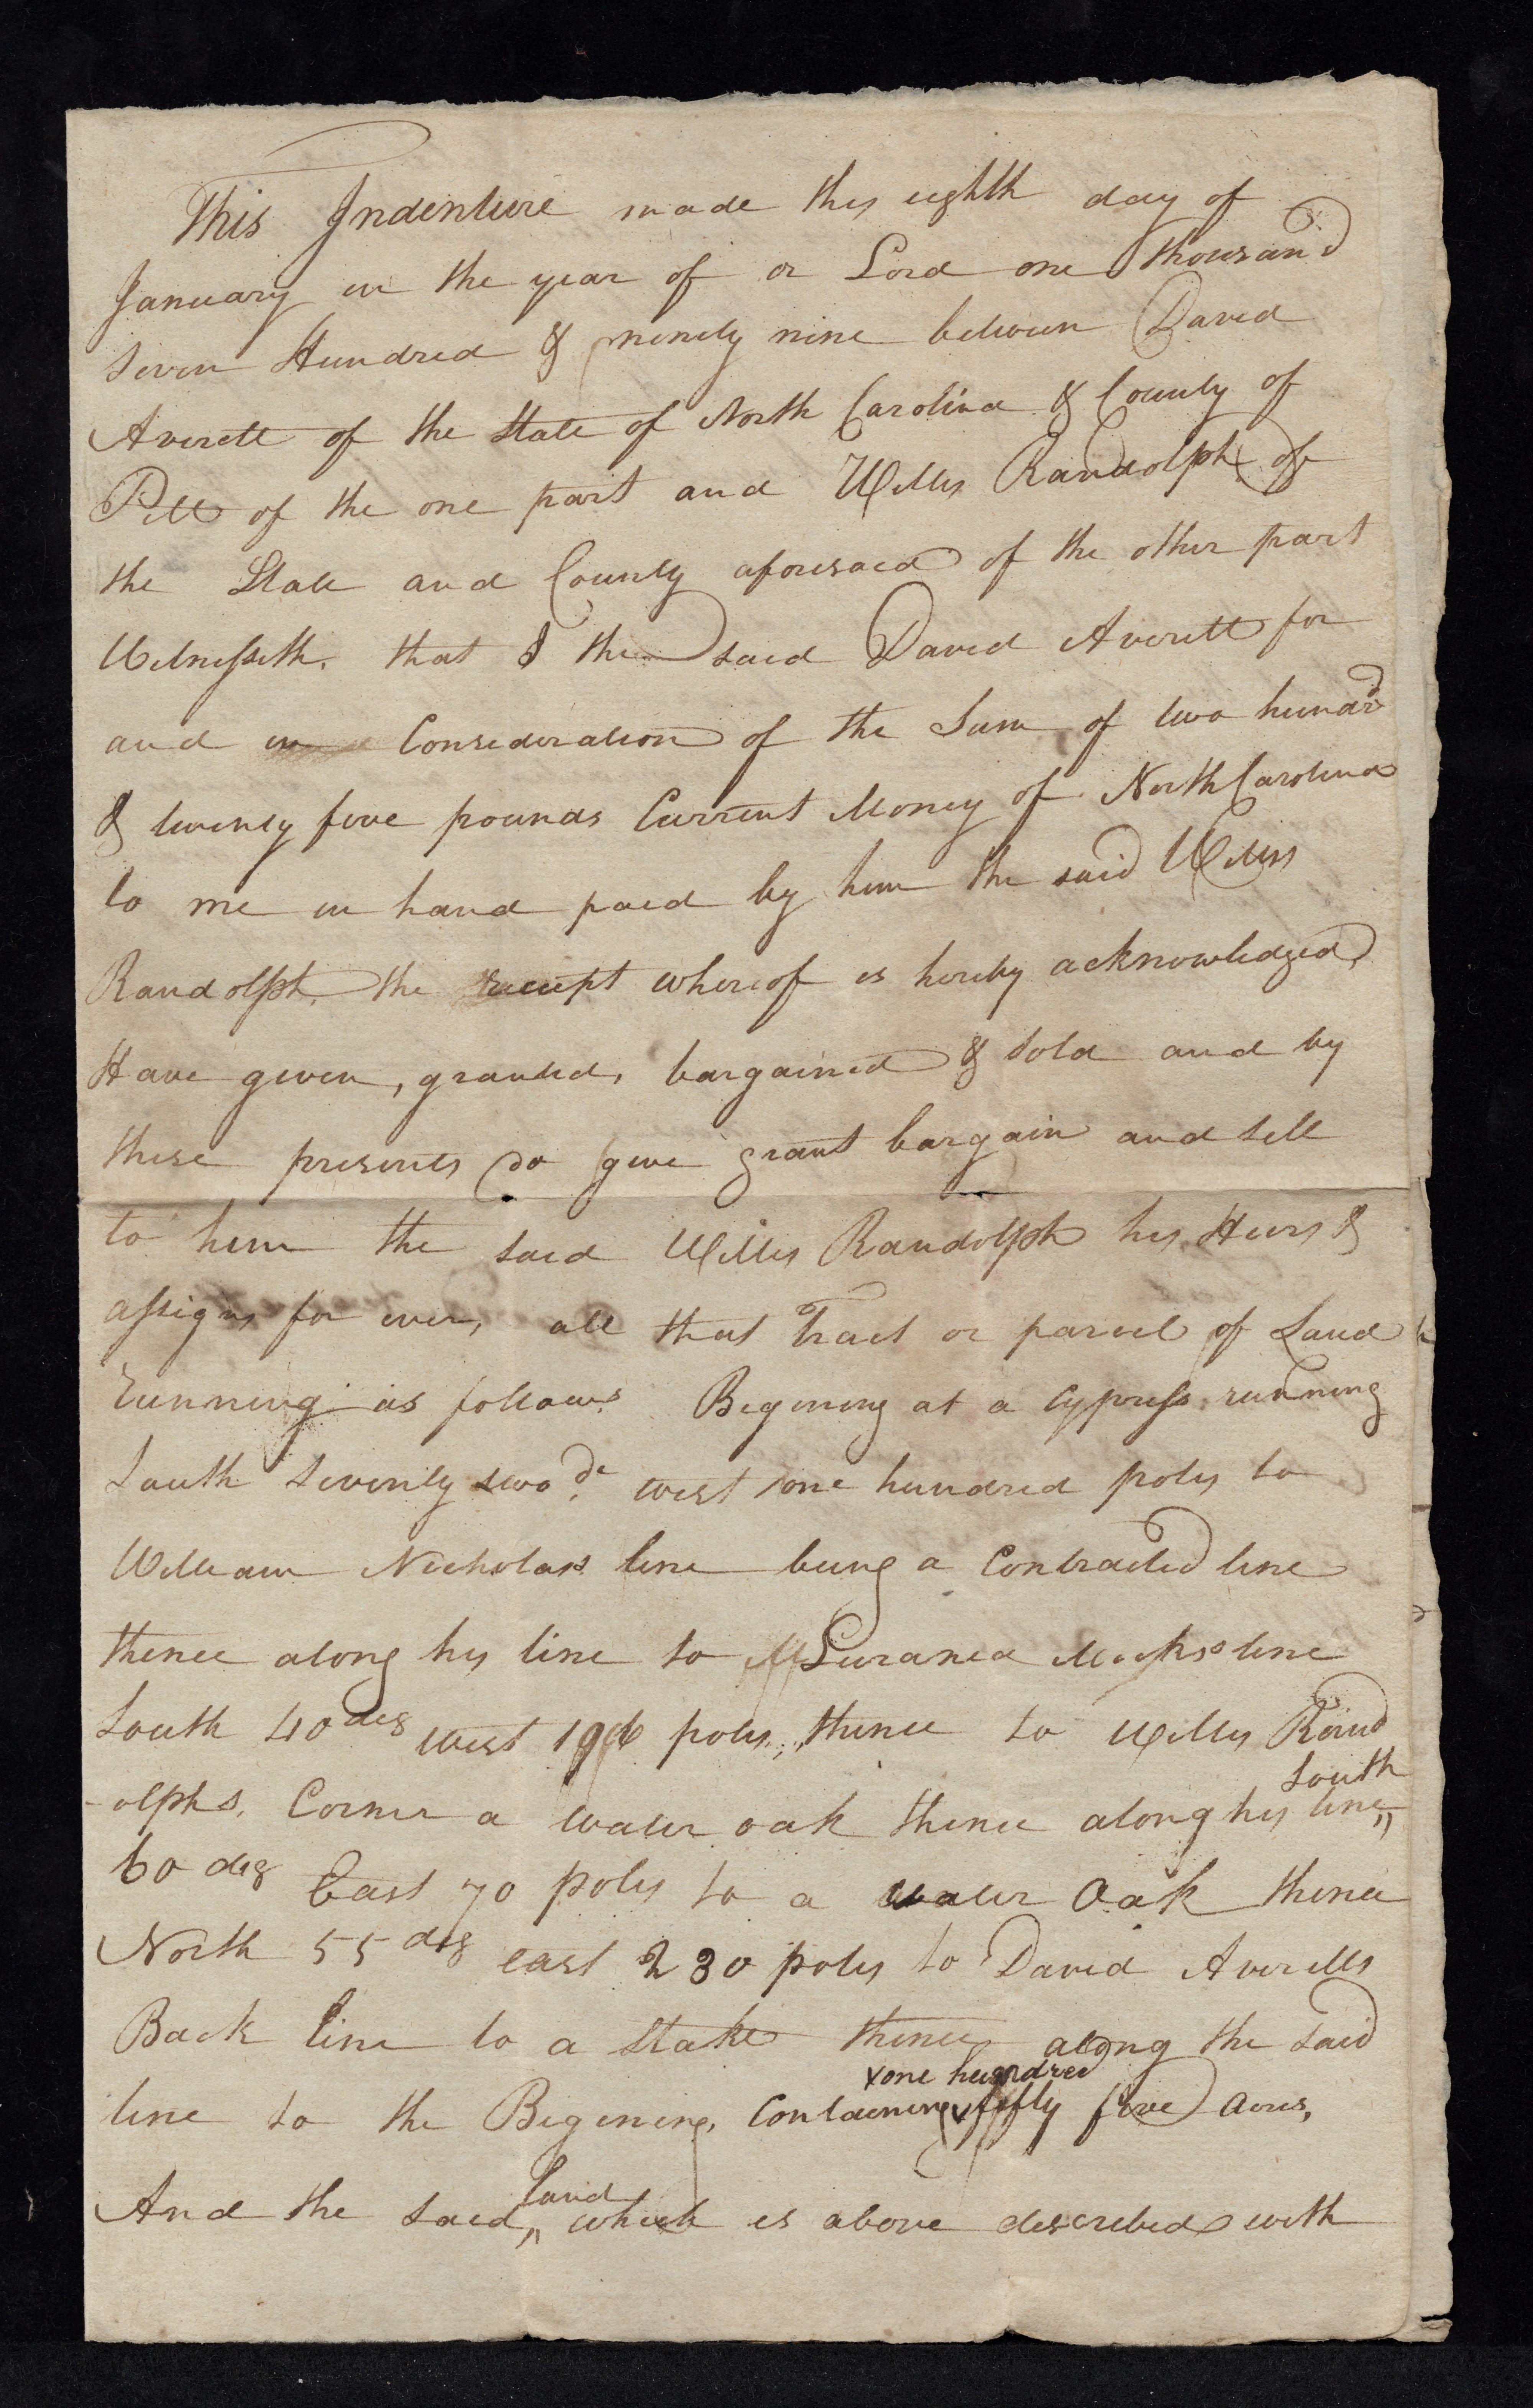 This Indenture made this eighth day of
January in the year of or Lord one thousand
Seven Hundred & ninety nine between David
Averett of the State of North Carolina & County of
Pitt of the one part and Willis Randolph of
the State and County aforesaid of the other part
Witnesseth. that I the said David Averett for
and in Consideration of the Sum of two hundrd
& twenty five pounds Current Money of North Carolina
to me in hand paid by him the said Willis
Randolph, the receipt whereof is hereby acknowledged,
Have given, granted, bargained & sold and by
these presents do give grant bargain and sell
to him the said Willis Randolph his Heirs &
assigns for ever, all that Tract or parcel of Land
running as follows. Begining at a Cypress running
South Seventy two de. west one hundred poles to
William Nicholas line being a Contracted line
thence along his line to line
South 40 deg west poles, thence to Willis Rand
-olphs, Corner a water oak thence along his line, South
60 deg East 70 poles to a water Oak thence
North 55 deg east 230 poles to David Averetts
Back line to a Stake thence along the said
line to the Begining, Containing one hundred fifty five acres,
And the said, land which is above described with